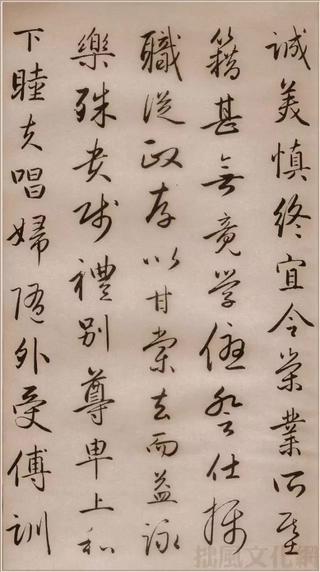 誠美慎終宜令榮業所基
籍甚無竟学優登仕攝
職從政存以甘棠去而益詠
樂殊貴賤禮別尊卑上和
下睦夫唱婦随外受傅訓
拙風文化網